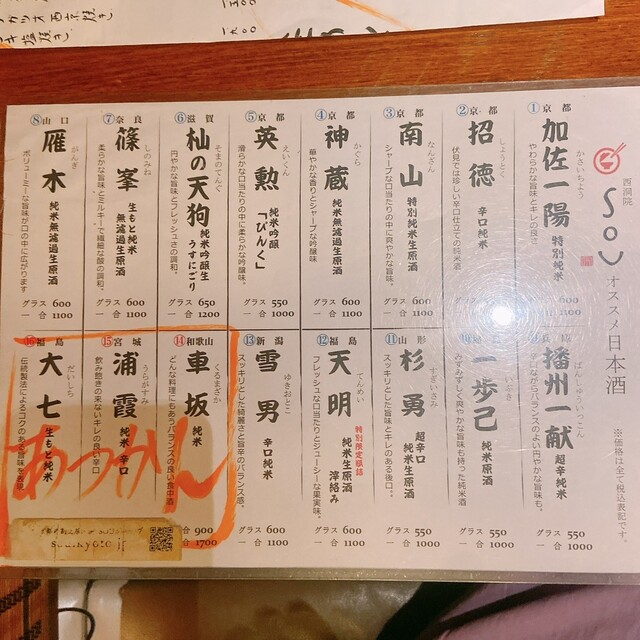 西洞院
Sou
オススメ日本酒
※価格は全て税込表記です。
①京都
かさいちよう
加佐一陽
特別純米
やわらかな旨味とキレの良さ
グラス 600
一合 1100
②京都
しょうとく
招徳
辛口純米
伏見では珍しい辛口仕立ての純米酒
③京都
なんざん
南山
特別純米生原酒
シャープな口当たりの中に爽やかな旨味。
グラス 600
一合 1100
④京都
かぐら
神蔵
純米無濾過生原酒
華やかな香りとシャープな吟醸味
グラス 600
一合 1100
⑤京都
えいくん
英勲
純米吟醸「ぴんく」
滑らかな口当たりの中に柔らかな吟醸味。
グラス 550
一合 1000
⑥滋賀
そまのてんぐ
杣の天狗
純米吟醸生
うすにごり
円やかな旨味とフレッシュさの調和。
グラス 650
一合 1200
⑦奈良
しのみね
篠峯
生もと純米
無濾過生原酒
柔らかな旨味とミルキーで繊細な酸の調和。
グラス 600
一合 1100
⑧山口
がんぎ
雁木
純米無濾過生原酒
ボリューミーな旨味が口の中に広がります
グラス 600
一合 1100
ばんしゅういっこん
播州一献
超辛純米
グラス 550
一合 1000
一歩己
純米原酒
みずみずしく爽やかな旨味も持った純米酒
グラス 550
一合 1000
⑪山形
すぎいさみ
杉勇
超辛口
純米生原酒
スッキリとした旨味とキレのある後口。
グラス 550
一合 1000
⑫福島
てんめい
天明
特別限定醸造
純米生原酒
滓絡み
フレッシュな口当たりとジューシーな果実味。
グラス 600
一合 1100
⑬新潟
ゆきおとこ
雪男
辛口純米
スッキリとした綺麗さと旨辛のバランス感。
グラス 550
一合 1000
⑭和歌山
くるまざか
車坂
純米
どんな料理にもあうバランスの良い食中酒
900
合 1700
⑮宮城
うらがすみ
浦霞
純米 辛口
飲み飽きの来ないキレの良い辛口
⑯福島
だいしち
大七
生もと純米
伝統製法によるコクのある旨味を表現
あつかん